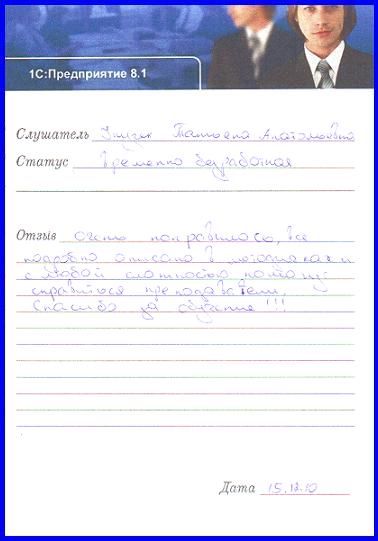 1С:Предприятие 8.1
Слушатель Татьяна Анатольевна
Статус временно безработная
Отзыв очень понравилось, все
подробно описано в методичках и
с любой сложностью помогут
справиться преподаватели.
Спасибо за обучение!!!
Дата 15.12.10